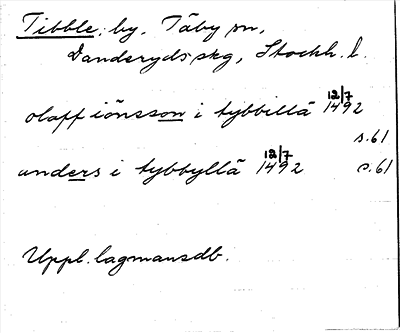 Tibble, by, Täby sn,
Danderyds skg, Stockh. l.
olaff iönsson i tybbillä 12/7 1492
s. 61
anders i tybbyllä 12/7 1492 s. 61
Uppl. lagmansdb.